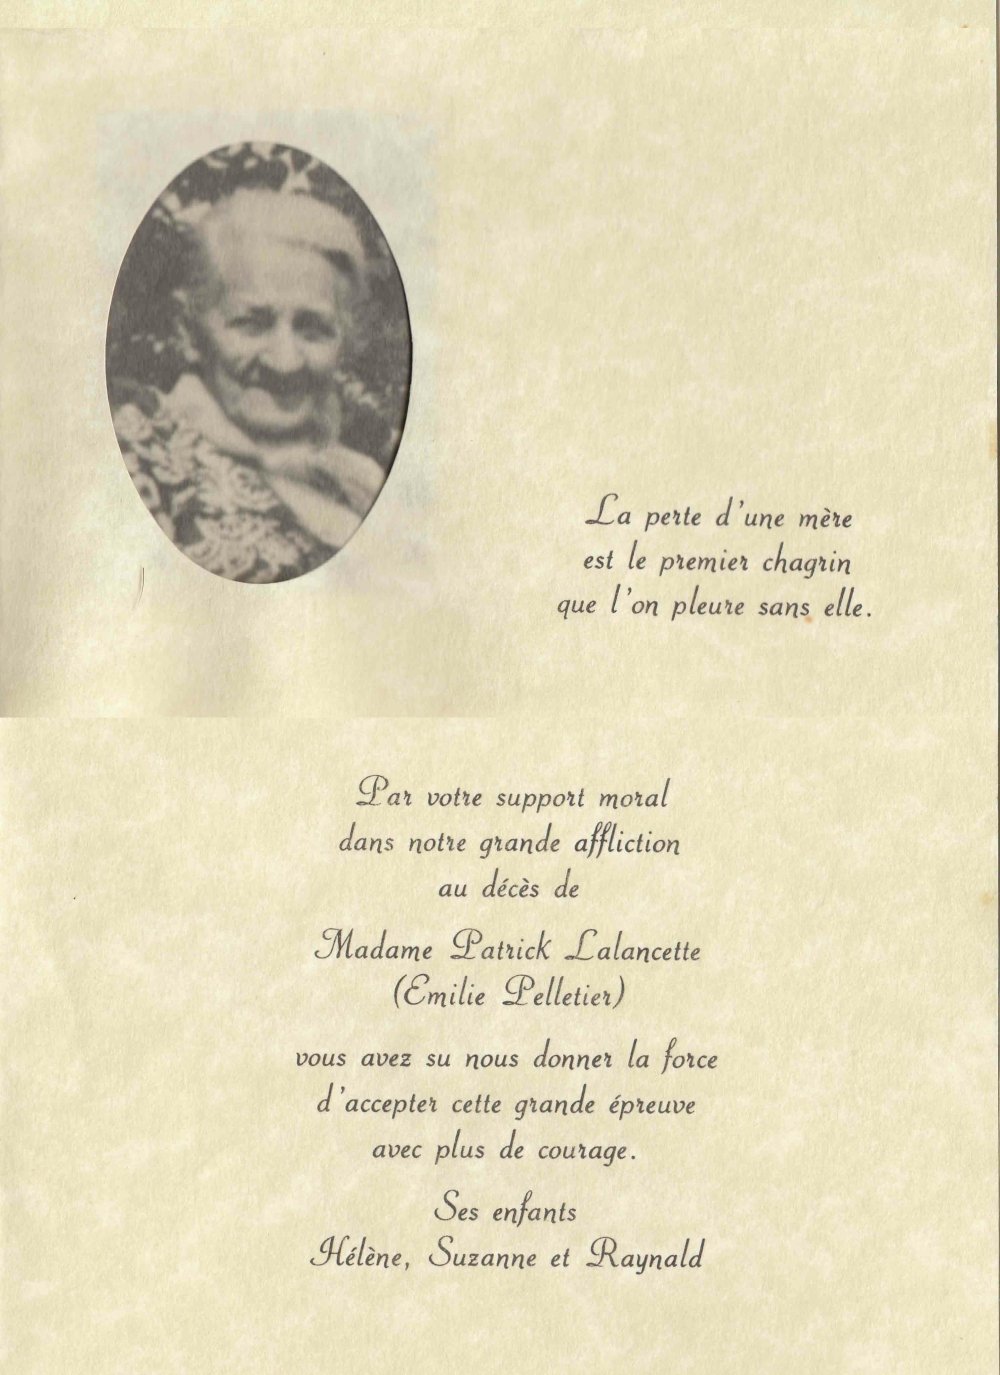 La perte d'une mère
est le premier chagrin
que l'on pleure sans elle.
Par votre support moral
dans notre grande affliction
au décès de
Madame Patrick Lalancette
(Emilie Pelletier)
vous avez su nous donner la force
d'accepter cette grande épreuve
avec plus de courage.
Ses enfants
Hélène, Suzanne et Raynald